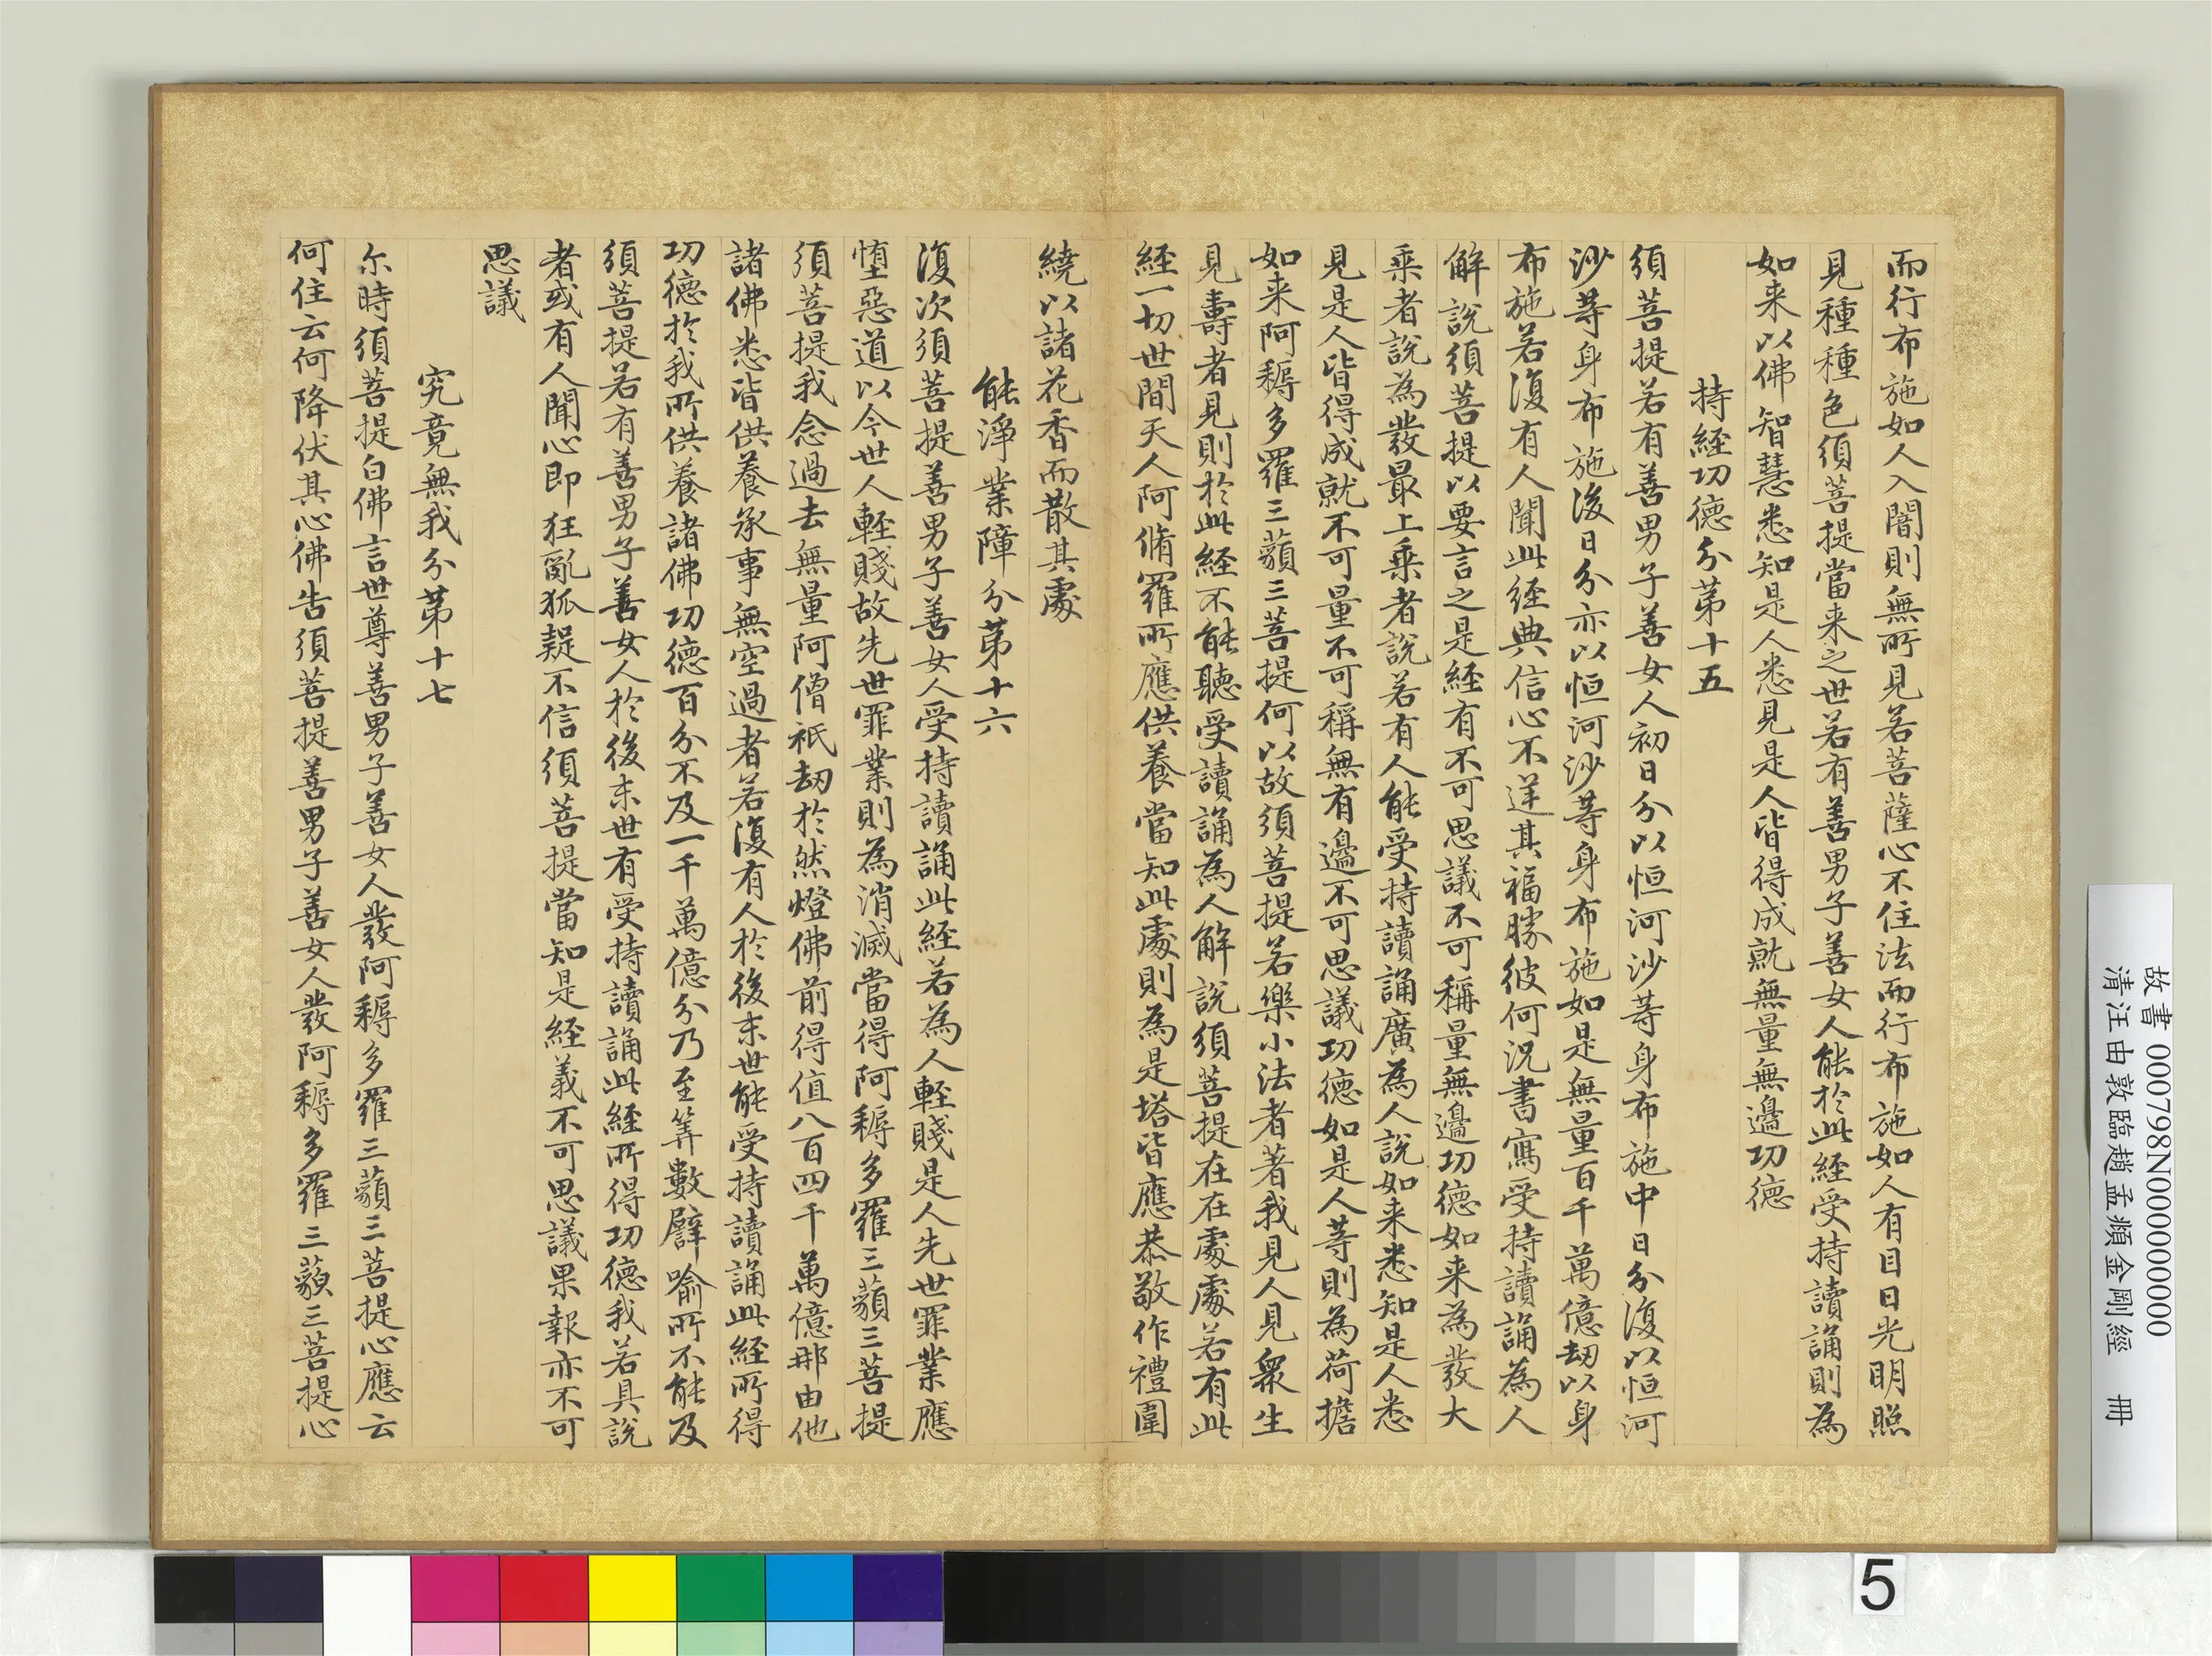 而行布施如人入闇則無所見若菩薩心不住法而行布施如人有目日光明照
見種種色須菩提當来之世若有善男子善女人能於此経受持讀誦則為
如来以佛智慧悉知是人悉見是人皆得成就無量無邊功德
持経功德分第十五
須菩提若有善男子善女人初日分以恒河沙等身布施中日分復以恒河
沙等身布施後日分亦以恒河沙等身布施如是無量百千萬億劫以身
布施若復有人聞此経典信心不逆其福勝彼何況書寫受持讀誦為人
解說須菩提以要言之是経有不可思議不可稱量無邊功德如来為發大
乘者說為發最上乘者說若有人能受持讀誦廣為人說如来悉知是人悉
見是人皆得成就不可量不可稱無有邊不可思議功德如是人等則為荷擔
如来阿耨多羅三藐三菩提何以故須菩提若樂小法者著我見人見衆生
見壽者見則於此経不能聽受讀誦為人解說須菩提在在處處若有此
経一切世間天人阿脩羅所應供養當知此處則為是塔皆應恭敬作禮圍
繞以諸花香而散其處
能淨業障分第十六
復次須菩提善男子善女人受持讀誦此経若為人輕賤是人先世罪業應
堕惡道以今世人輕賤故先世罪業則為消滅當得阿耨多羅三藐三菩提
須菩提我念過去無量阿僧祇劫於然燈佛前得值八百四千萬億那由他
諸佛悉皆供養承事無空過者若復有人於後末世能受持讀誦此経所得
功德於我所供養諸佛功德百分不及一千萬億分乃至筭數譬喻所不能及
須菩提若有善男子善女人於後末世有受持讀誦此経所得功德我若具說
者或有人聞心即狂亂狐疑不信須菩提當知是経義不可思議果報亦不可
思議
究竟無我分第十七
尔時須菩提白佛言世尊善男子善女人發阿耨多羅三藐三菩提心應云
何住云何降伏其心佛告須菩提善男子善女人發阿耨多羅三藐三菩提心
故書 000798N000000000
清汪由敦臨趙孟頫金剛經 冊
5